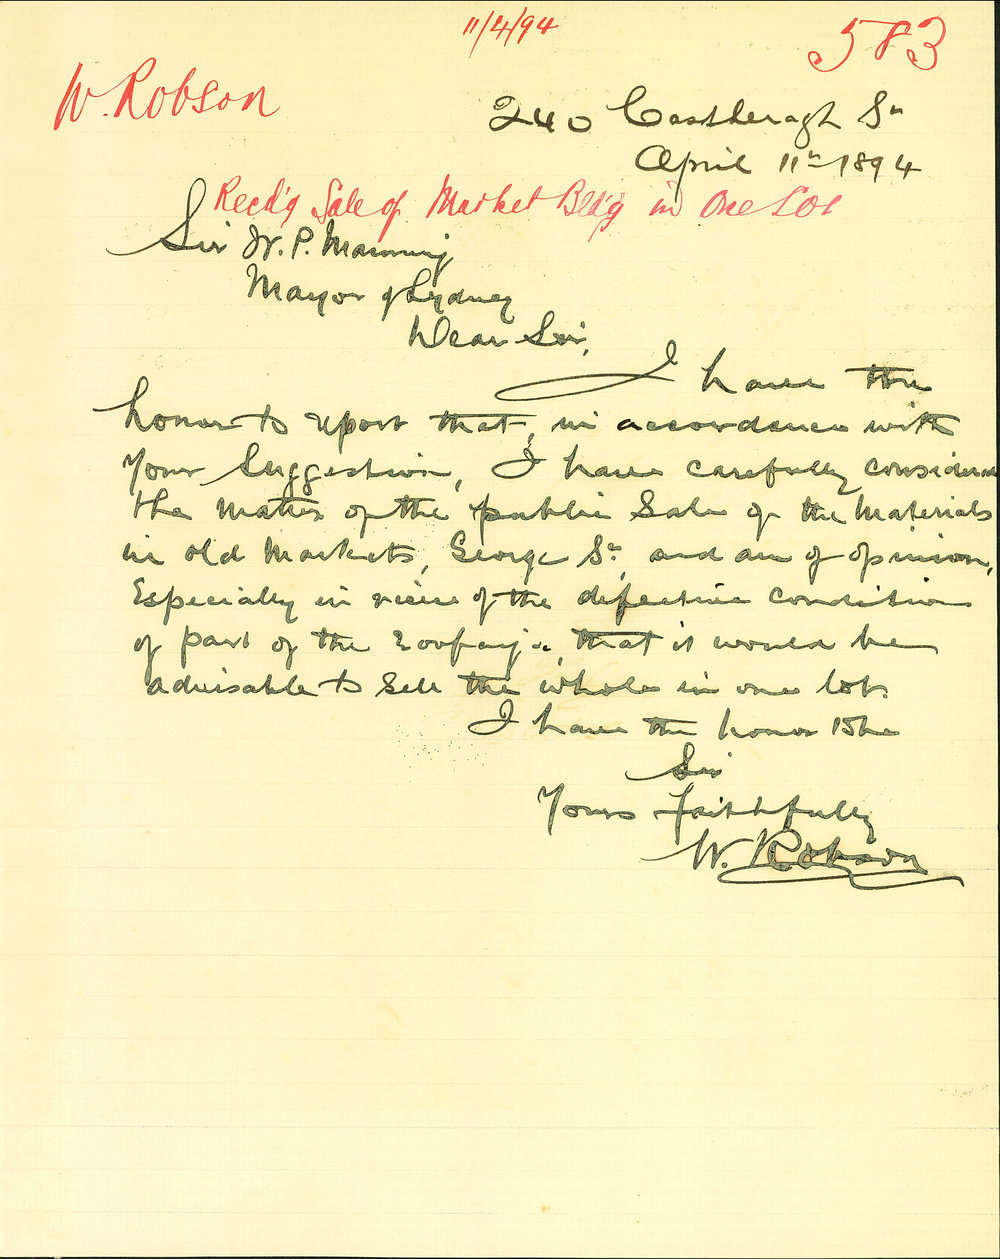 11/4/94
583
W. Robson
240 Castlereagh St
April 11th 1894
Recd'g Sale of Market Bld'g in One Lot
Sir W. P. Manning
Mayor of Sydney
Dear Sir,
I have the
honor to report that, in accordance with
your suggestion, I have carefully considered
the matter of the public Sale of the Materials
in old Markets, George St, and am of opinion,
Especially in view of the defective condition
of part of the roofing &c, that it would be
advisable to sell the whole in one lot.
I have the honor to be
Sir
Yours Faithfully
W. Robson